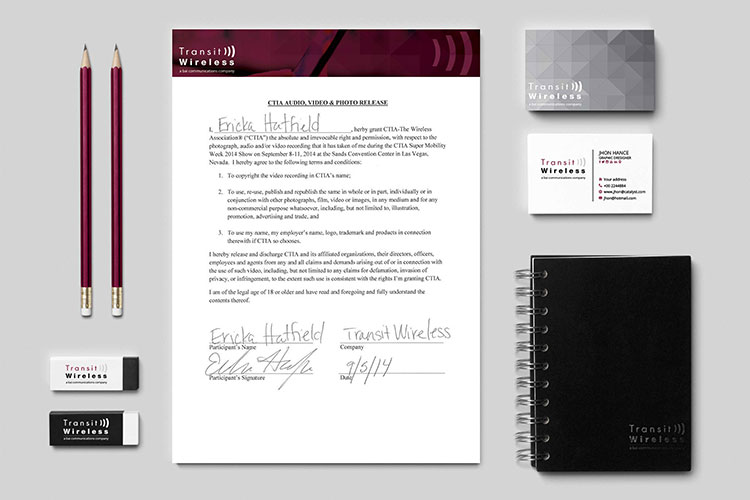 Transit
Wireless
a bai communications company
CTIA AUDIO, VIDEO & PHOTO RELEASE
I, Ericka Hatfield, herby grant CTIA-The Wireless
Association® ("CTIA") the absolute and irrevocable right and permission, with respect to the
photograph, audio and/or video recording that it has taken of me during the CTIA Super Mobility
Week 2014 Show on September 8-11, 2014 at the Sands Convention Center in Las Vegas,
Nevada. I hereby agree to the following terms and conditions:
1. To copyright the video recording in CTIA's name;
2. To use, re-use, publish and republish the same in whole or in part, individually or in
conjunction with other photographs, film, video or images, in any medium and for any
non-commercial purpose whatsoever, including, but not limited to, illustration,
promotion, advertising and trade, and
3. To use my name, my employer's name, logo, trademark and products in connection
therewith if CTIA so chooses.
I hereby release and discharge CTIA and its affiliated organizations, their directors, officers,
employees and agents from any and all claims and demands arising out of or in connection with
the use of such video, including, but not limited to any claims for defamation, invasion of
privacy, or infringement, to the extent such use is consistent with the rights I'm granting CTIA.
I am of the legal age of 18 or older and have read and foregoing and fully understand the
contents thereof.
Ericka Hatfield Transit Wireless
Participant's Name Company
9/5/14
Participant's Signature Date
Transit
Wireless
a bai communications company
JHON HANCE
GRAPHIC DRESIGNER
Transit
Wireless
a bai communications company
Your address
+00 2244884
www.jhon@catalyst.com
jhon@hotmail.com
Transit
Wireless
a bai communications company
Transit
Wireless
a bai communications company
Transit
Wireless